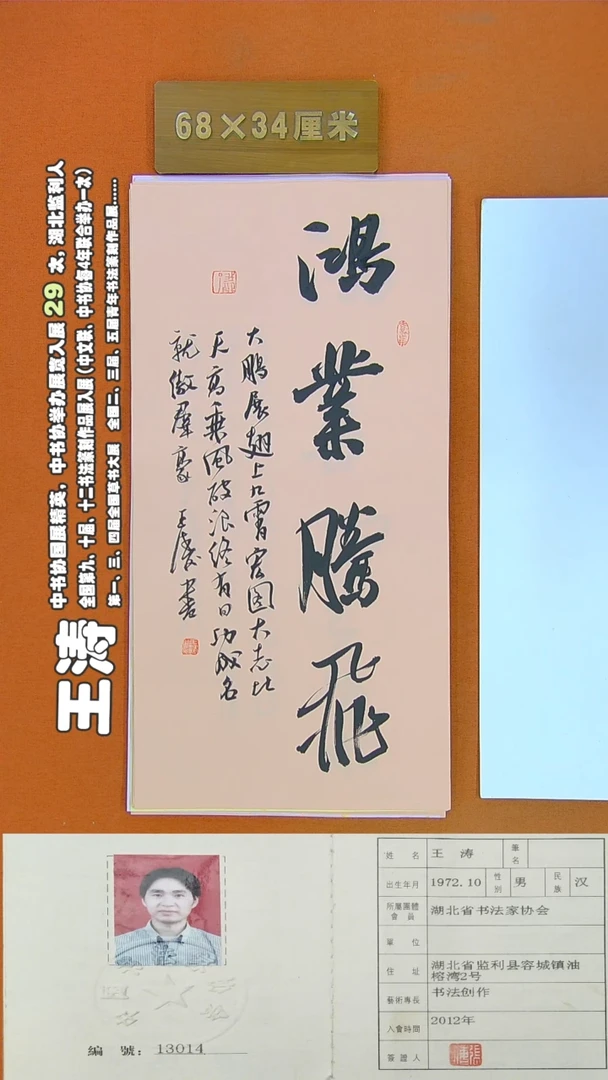 68×34厘米
王涛
中书协国展精英，中书协举办展赛入展 29 次，湖北监利人
全国第九、十届、十二书法篆刻作品展入展（中文联、中书协每4年联合举办一次）
第一、三、四届全国草书大展 全国二、三届、五届青年书法篆刻作品展......
鴻業騰飛
大鵬展翅上九霄宏图大志比
天高乘风破浪终有日功成名
就傲群豪 王涛书
姓名 王 涛 筆名
出生年月 1972.10 性别 男 民族 汉
所屬團體會員 湖北省书法家协会
單位
住址 湖北省监利县容城镇油榕湾2号
藝術專長 书法创作
入會時間 2012年
簽證人
編號：13014